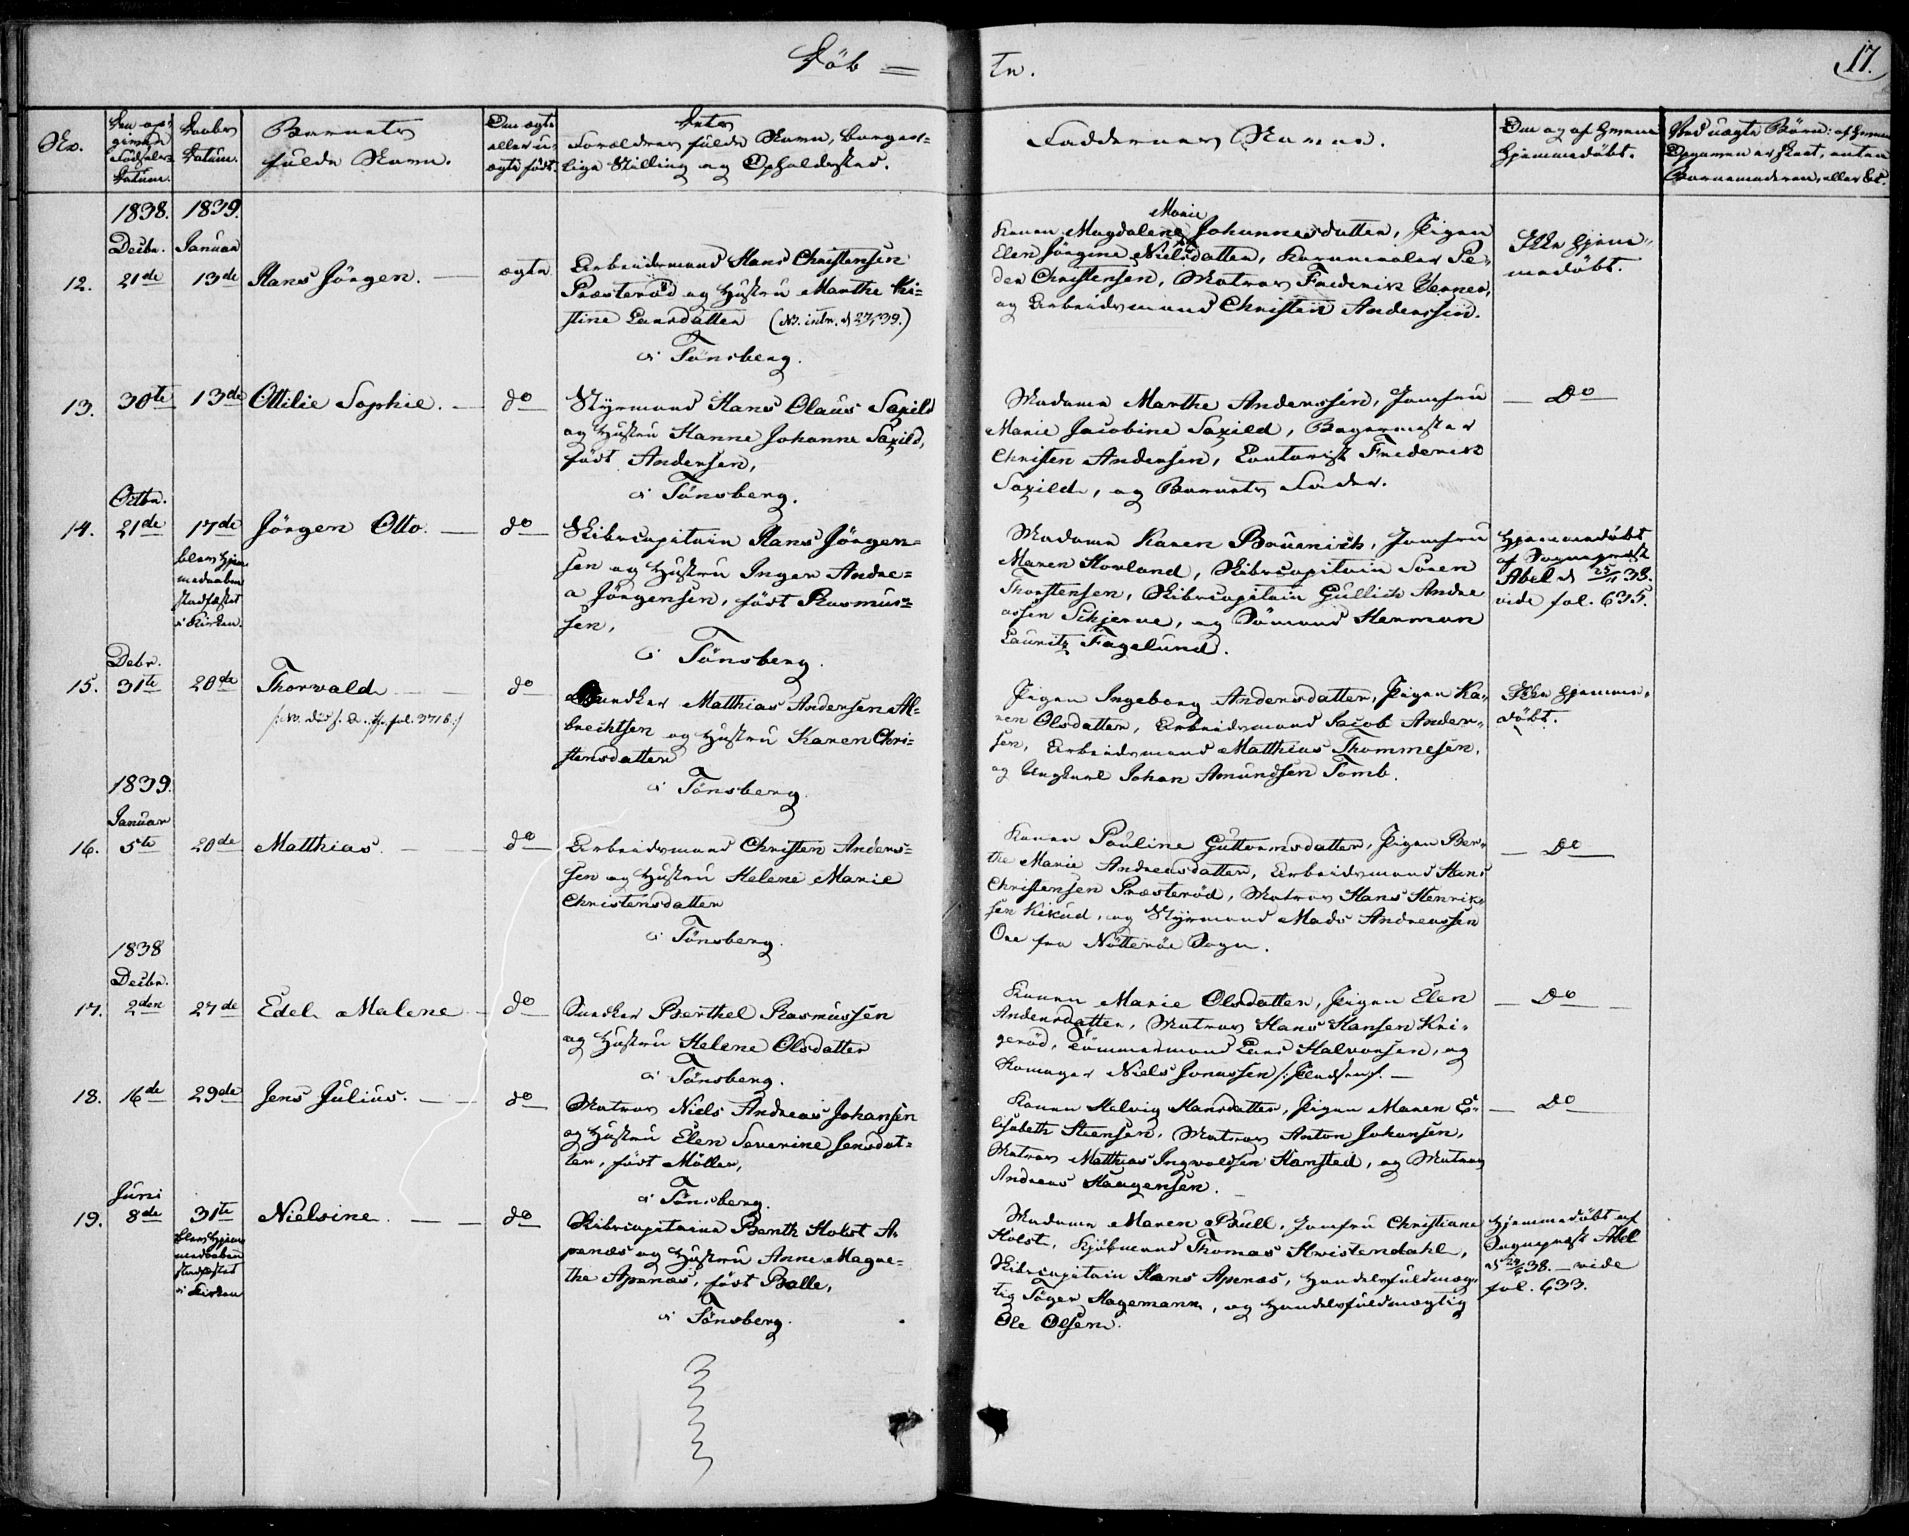 Döb = te.
17.
No.
Den opgivne Födsels Datum.
Daabs Datum.
Barnets fulde Navn.
Om ægte eller uægte födt.
Dets Forældres fulde Navn, borgerlige Stilling og Opholdssted.
Faddernes Navne.
Om og af hvem hjemmedöbt.
Ved uægte Börn: af hvem Opgaven er skeet, enten Barnemoderen, eller &c.
1838. 1839.
Decbr. Januar
12. 21de 13de Hans Jörgen. — ægte
Arbeidsmand Hans Christensen
Præsteröd og Hustru Marthe Ki-
stine Larsdatter
i Tönsberg.
Konen Magdalene Marie Johannesdatter, Pigen
Elen Jörgine Nielsdatter, Pe-
der Christensen, Matros Frederik Verner,
og Arbeidsmand Christen Anderssen.
Ikke hjem-
medöbt.
13. 30te 13de Ottilie Sophie. — do
Styrmand Hans Olaus Saxild
og Hustru Hanne Johanne Saxild,
födt Andersen,
i Tönsberg.
Madame Marthe Anderssen, Jomfru
Marie Jacobine Saxild, Bagermester
Christen Andersen, Contorist Frederik
Saxild, og Barnets Fader.
— Do —
Octbr.
14. 21de 17de Jörgen Otto. — do
blev hjem
medaaben
stadfæstet
i Kirken.
Skibscapitain Hans Jörgen-
sen og Hustru Inger Andre-
a Jörgensen, födt Rasmus-
sen,
i Tönsberg.
Madame Karen Bruenich, Jomfru
Maren Hovland, Skibscapitain Sören
Thorstensen, Skibscapitain Gullich Andre
assen Schjerve, og Sömand Herman
Lauritz Fagelund.
Hjemmedöbt
af Sognepræst
Abel d 25/11 38.
vide fol. 635.
Debr.
15. 31te 20de Thorwald — — do
Matthias Andersen Al-
brechtsen og Hustru Karen Chri-
stensdatter
i Tönsberg
Pigen Ingeborg Andersdatter, Pigen Ka-
ren Olsdatter, Arbeidsmand Jacob Ander-
sen, Arbeidsmand Matthias Thommesen,
og Ungkarl Johan Amundsen Tomb.
Ikke hjemme-
döbt.
1839.
Januar
16. 5te 20de Matthias. — — do
Arbeidsmand Christen Anders-
sen og Hustru Helene Marie
Christensdatter
i Tönsberg.
Konen Pauline Guttormsdatter, Pigen Ber-
the Marie Andreasdatter, Arbeidsmand Hans
Christensen Præsteröd, Matros Hans Henrik-
sen Kikud, og Styrmand Mads Andreassen
Ore fra Nötteröe Sogn.
— Do —
1838
Decbr.
17. 2den 27de Edel Malene — do
Snedker Berthel Rasmussen
og Hustru Helene Olsdatter
i Tönsberg.
Konen Marie Olsdatter, Pigen Elen
Andersdatter, Matros Hans Hansen Kri-
geröd, Tömmermand Lars Halvorsen, og
Niels Jonassen
— Do —
18. 16de 29de Jens Julius. — — do
Matros Niels Andreas Johansen
og Hustru Elen Severine Jensdat-
ter, födt Möller,
i Tönsberg.
Konen Helvig Hansdatter, Pigen Maren E-
lisabeth Steensen, Matros Anton Johansen,
Matros Matthias Ingvoldsen Hansted, og Matros
Andreas Haagensen.
— Do
Juni
19. 8de 31te Nielsine. — — do
blev hjem
medaaben
stadfæstet
i Kirken
Skibscapitaine Benth Holst A-
penæs og Hustru Anne Magre-
the Apenæs, födt Balle,
i Tönsberg.
Madame Maren Bull, Jomfru Christiane
Holst, Kjöbmand Thomas Hvistendahl,
Skibscapitain Hans Apenæs, Handelsfuldmæg-
tig Söger Hagemann, og Handelsfuldmægtig
Ole Olsen.
Hjemmedöbt af
Sognepræst Abel
38. — vide
fol. 633.